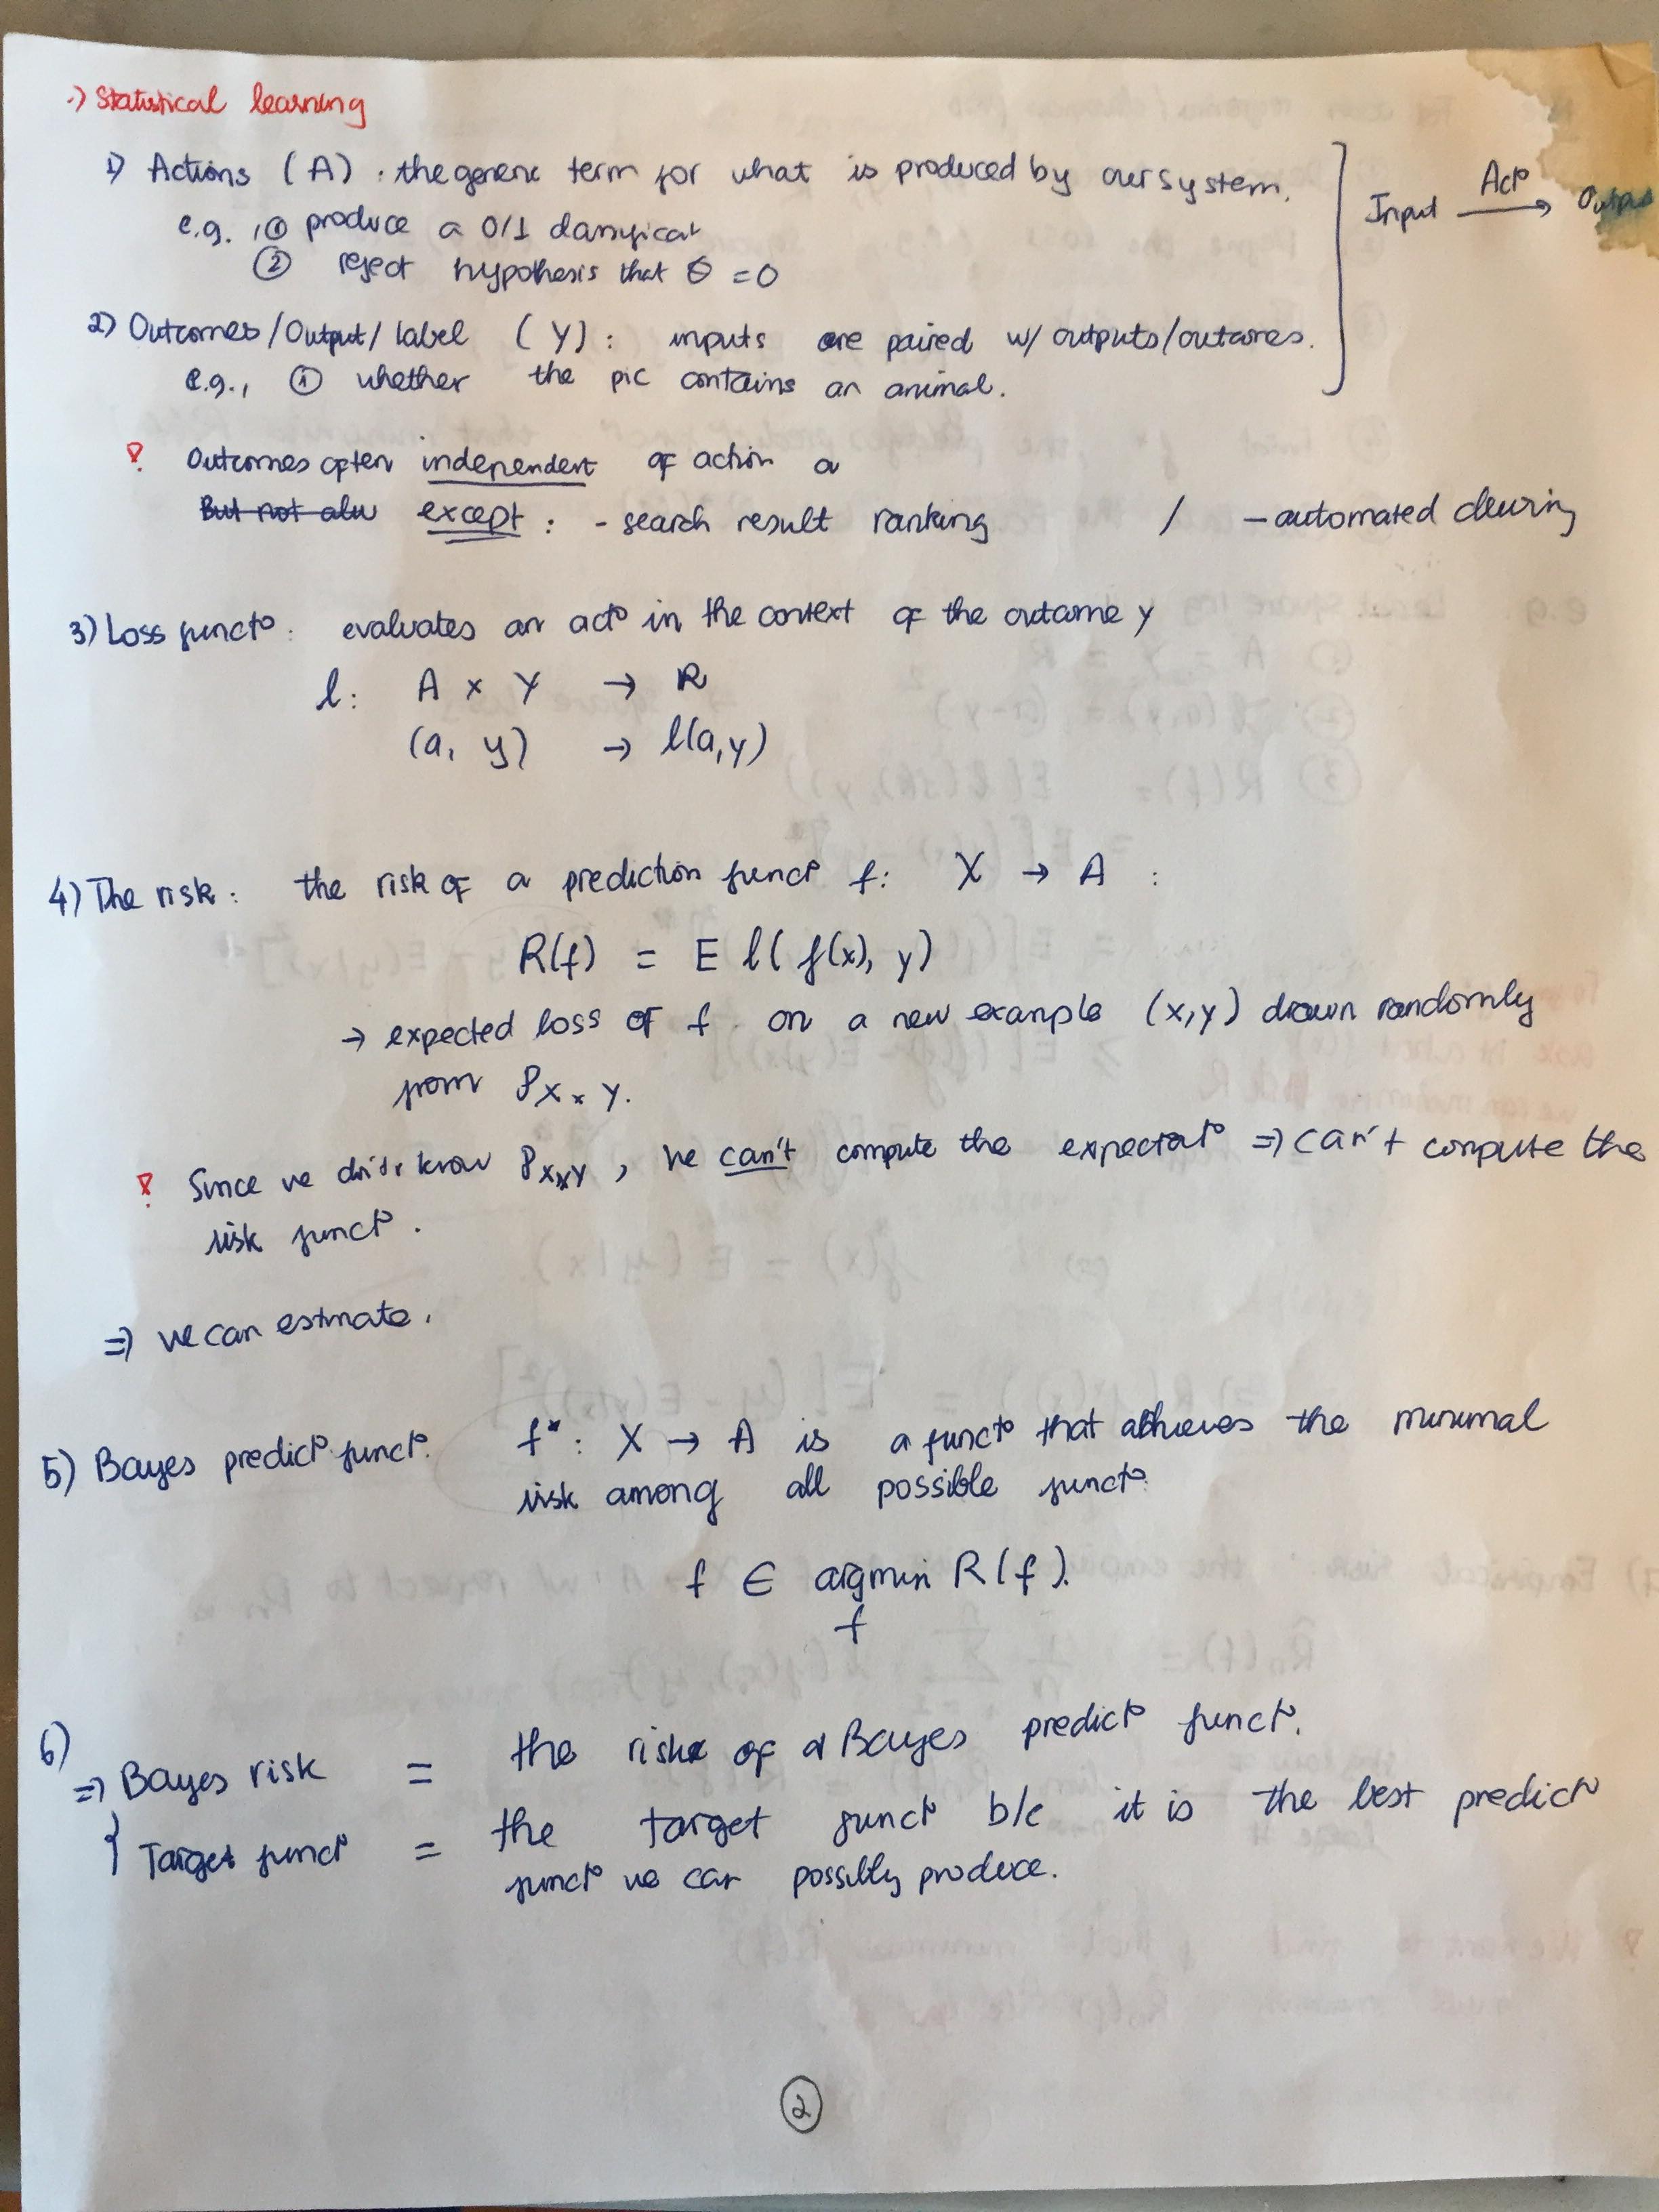 ·) Statistical learning
1) Actions (A) : the generic term for what is produced by our system.
e.g. , ① produce a 0/1 classificat°
② reject hypothesis that θ = 0
Input Act° → Output
2) Outcomes/Output/label (Y) : inputs are paired w/ outputs/outcomes.
e.g., ① whether the pic contains an animal.
Outcomes often independent of action a
But not alw except : - search result ranking / - automated driving
3) Loss funct° : evaluates an act° in the context of the outcome y
l : A × Y → R
(a, y) → l(a,y)
4) The risk : the risk of a prediction funct° f: X → A :
R(f) = E l( f(x), y)
→ expected loss of f on a new example (x,y) drawn randomly
from P X × Y.
Since we don't know P X×Y , we can't compute the expectat° ⇒ can't compute the
risk funct° .
⇒ we can estimate.
5) Bayes predict° funct°. f* : X → A is a funct° that achieves the minimal
risk among all possible funct°.
f ∈ argmin R(f).
f
6)
⇒ Bayes risk = the risk of a Bayes predict° funct°.
Target funct° = the target funct° b/c it is the best predict°
funct° we can possibly produce.
2